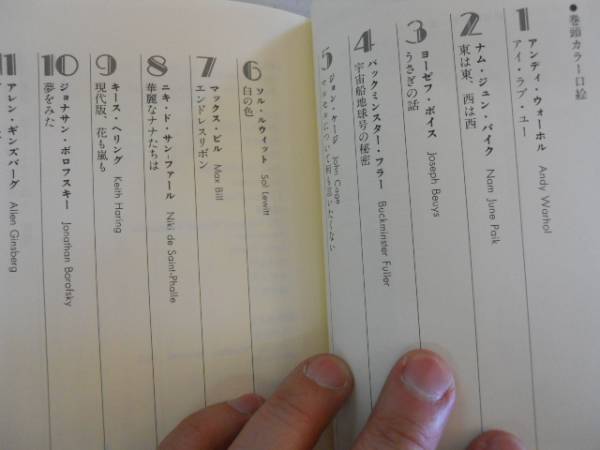 ●巻頭カラー口絵
1
アンディ・ウォーホル Andy Warhol
アイ・ラブ・ユー
2
ナム・ジュン・パイク Nam June Paik
東は東、西は西
3
ヨーゼフ・ボイス Joseph Beuys
うさぎの話
4
バックミンスター・フラー Buckminster Fuller
宇宙船地球号の秘密
5
ジョン・ケージ John Cage
6
ソル・ルウィット Sol Lewitt
白の色
7
マックス・ビル Max Bill
エンドレスリボン
8
ニキ・ド・サンファール Niki de Saint-Phalle
華麗なナナたちは
9
キース・ヘリング Keith Haring
現代版、花も嵐も
10
ジョナサン・ボロフスキー Jonathan Borofsky
夢をみた
11
アレン・ギンズバーグ Allen Ginsberg